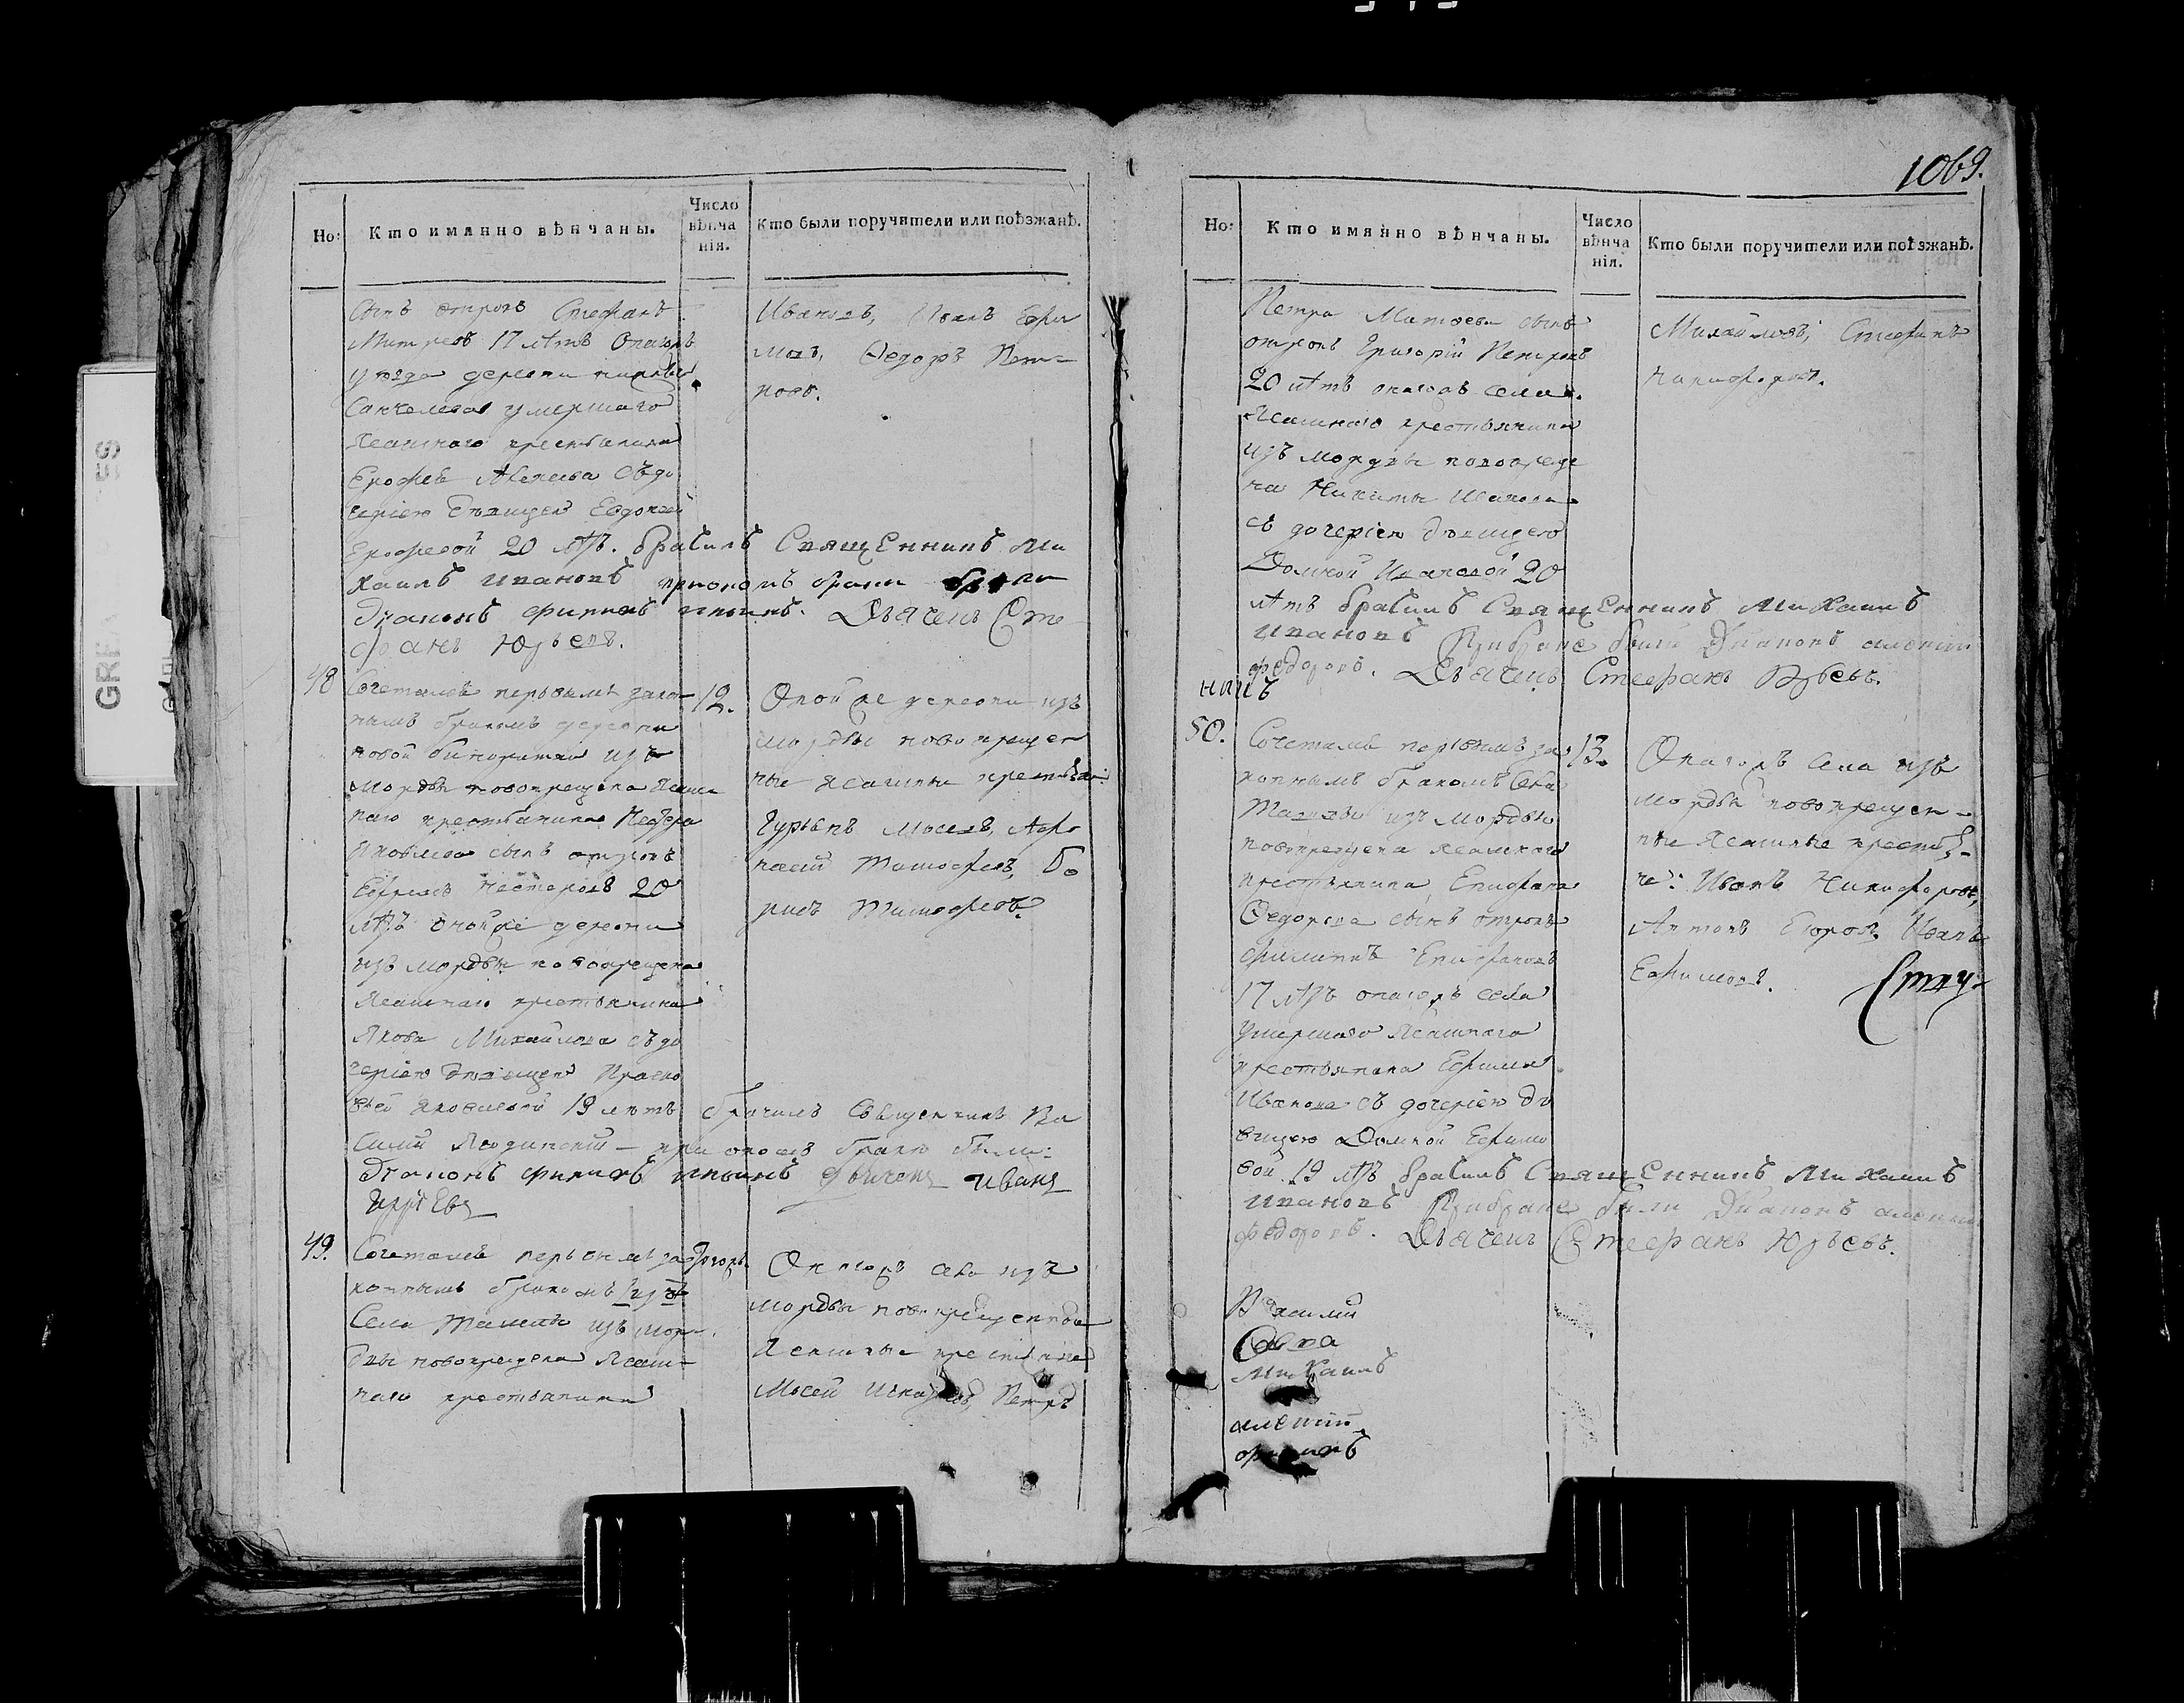 1069.
Но:
Кто имянно вѣнчаны.
Число
вѣнча
нія.
Кто были поручители или поѣзжанѣ.
сынъ отрокъ Стефанъ
Митреевъ 17 лѣтъ Онагожъ
уѣзда деревни
умершаго
Ясашнаго крестьянина
Ерофея Алексѣева съ до
черiею дѣвицей Евдокѣей
Ерофеевой 20 лѣтъ. браčилъ Священникъ Ми
хаилъ Ивановъ приономъ браке были
Дьяконъ филипъ ильинъ. Дьячекъ Сте
фанъ Юрьевъ.
Ивановъ, Иванъ Ефи
мовъ, Ѳедоръ Пет-
ровъ.
48
Сочетался первымъ зако-
12.
ннымъ бракомъ деревни
новой бинарадки изъ
мордвы новокрещена Ясаш
наго крестьянина Нестера
Яковлева сынъ отрокъ
Ефремъ Нестеровъ 20
лѣтъ онойже деревни
изъ мордвы новокрещена
Ясашнаго крестьянина
Якова Михайлова съ до
черiею дѣвицей Праско
вьей Яковлевой 19 лѣтъ обрачилъ Священникъ Ва
силий при ономъ браке были:
Дьяконъ филипъ ильинъ Дьячекъ иванъ
Онойже деревни изъ
мордвы новокрещен
ные ясашны крестьяни:
Гурьянъ Мосевъ, Афо
насей Тимофеевъ, Бо
рисъ Тимофеевъ.
49.
Сочетался первымъ за
тогожъ
коннымъ бракомъ
Села Ташлы изъ мор
двы новокрещена Ясаш-
наго крестьянина
Онагожъ села изъ
мордвы новокрещенные
Ясашные крестьяне
Мосей Петръ
Но:
Кто имянно вѣнчаны.
Число
вѣнча
нія.
Кто были поручители или поѣзжанѣ.
Петра Матвеева сынъ
отрокъ Григорій Петровъ
20 лѣтъ онагожъ села
Ясашнаго крестьянина
изъ мордвы новокреще
на Никиты Иванова
съ дочерiею дѣвицею
Домной Ивановой 20
лѣтъ браčилъ Священникъ Михаилъ
Ивановъ При браке были Дьяконъ алексѣй
федоровъ. Дьячекъ Стефанъ Юрьевъ.
Михайловъ, Стефанъ
Никифоровъ.
50.
Сочетался первымъ за
13.
коннымъ бракомъ Села
Ташлы изъ мордвы
новокрещена ясашнаго
крестьянина Епифана
Ѳедорова сынъ отрокъ
филипъ Епифановъ
17 лѣтъ онагожъ села
умершаго Ясашнаго
крестьянина Ефима
Иванова съ дочерiею дѣ
вицею Домной Ефимо
вой 19 лѣтъ браčилъ Священникъ Михаилъ
Ивановъ При браке были Дьяконъ алексѣй
федоровъ. Дьячекъ Стефанъ Юрьевъ.
Онагожъ села изъ
мордвы новокрещен-
ные Ясашные крестья-
не: Иванъ Никифоровъ,
Антонъ Егоровъ, Иванъ
Ефимовъ.
Василий
Савва
Михаилъ
алексѣй
филипъ